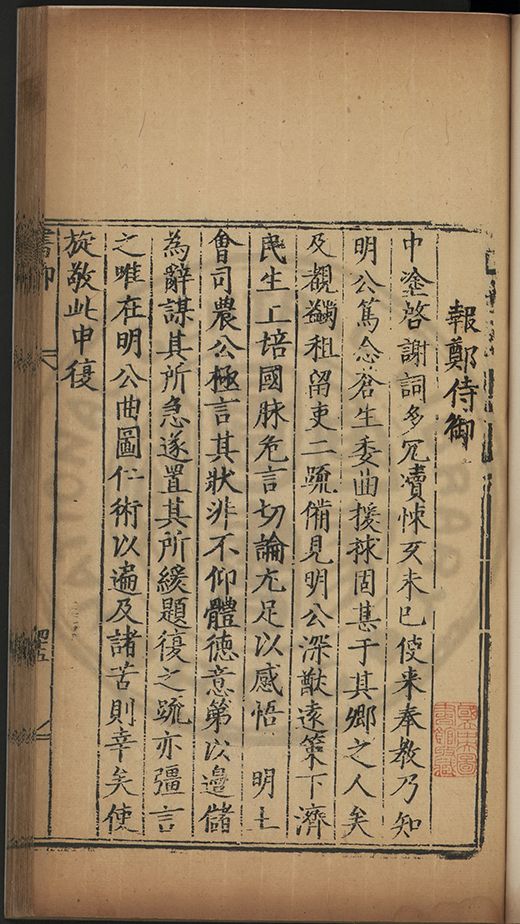 報鄭侍御
中塗啓謝詞多冗瀆悚仄未已使来奉教乃知
明公篤念蒼生委曲援捄固甚于其鄉之人矣
及覩蠲租留吏二疏俻見明公深猷遠策下濟
民生上培國脉危言切論尢足以感悟 明主
會司農公極言其狀涐不仰體德意第以邊儲
為辭謀其所急遂置其所緩題復之疏亦彊言
之唯在明公曲圖仁術以遍及諸苦則幸矣使
旋敬此申復